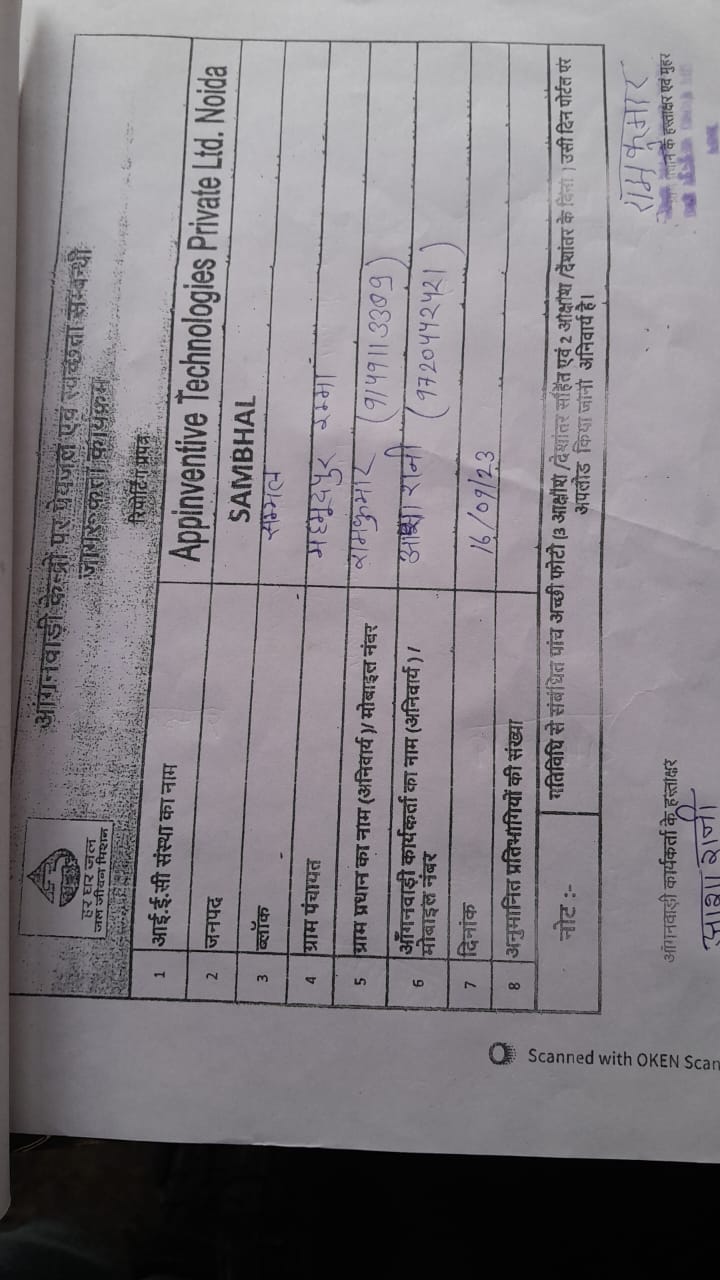 आंगनवाड़ी केन्द्रो पर पेयजल एवं स्वच्छता सम्बन्धी
जागरूकता कार्यक्रम
रिपोर्टिंग प्रपत्र
हर घर जल
जल जीवन मिशन
1 आई.ई.सी संस्था का नाम Appinventive Technologies Private Ltd. Noida
2 जनपद SAMBHAL
3 ब्लॉक सम्भल
4 ग्राम पंचायत महमूदपुर
5 ग्राम प्रधान का नाम (अनिवार्य)/ मोबाइल नंबर रामकुमार
6 आँगनवाड़ी कार्यकर्ता का नाम (अनिवार्य) / आशा रानी
मोबाइल नंबर
7 दिनांक 16/09/23
8 अनुमानित प्रतिभागियों की संख्या
नोट :- गतिविधि से संबंधित पांच अच्छी फोटो (3 आक्षांश /देशांतर सहित एवं 2 आक्षांश /देशांतर के बिना ) उसी दिन पोर्टल पर
अपलोड किया जाना अनिवार्य है।
रामकुमार
के हस्ताक्षर एवं मुहर
आंगनवाड़ी कार्यकर्ता के हस्ताक्षर
आशा रानी
Scanned with OKEN Scan